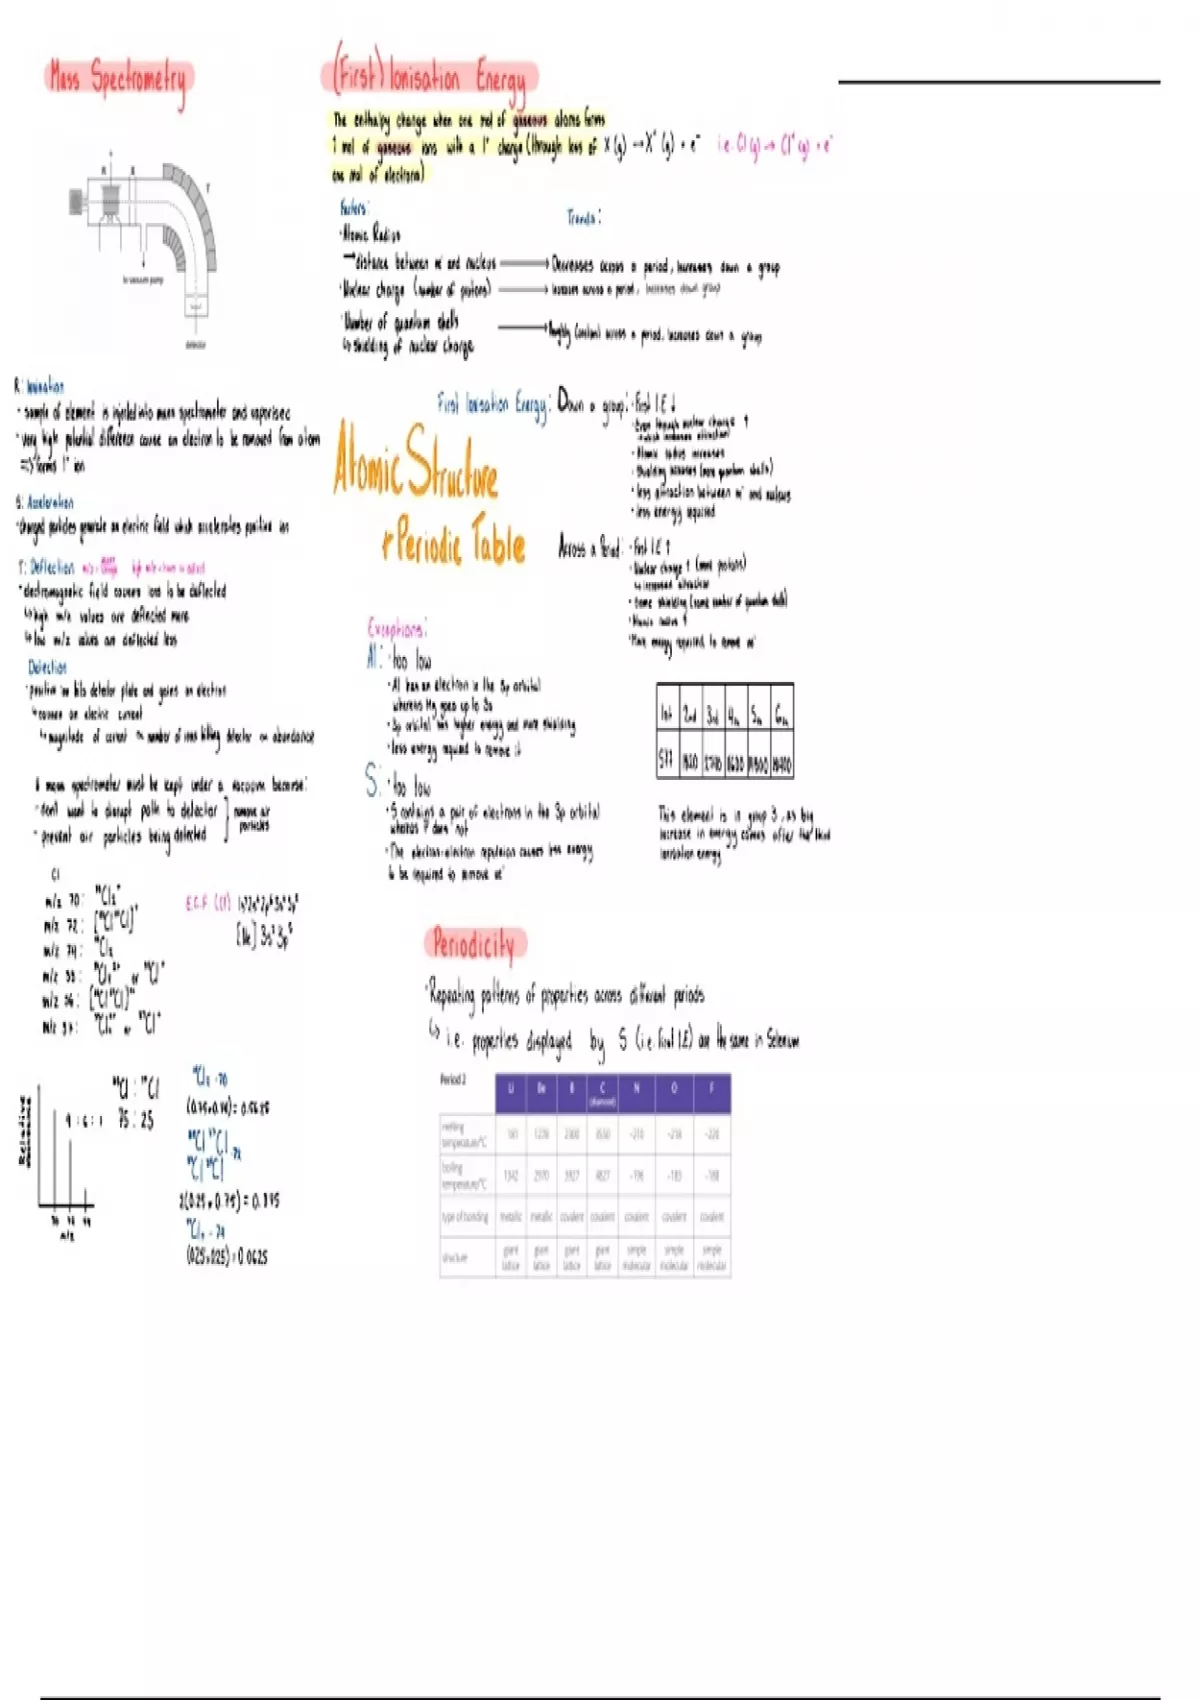 Mass Spectrometry
R
S
T
to vacuum pump
detector
R: Ionisation
· sample of element is injected into mass spectrometer and vaporised
· very high potential difference cause an electron to be removed from atom
=> forms 1+ ion
S: Acceleration
· charged particles generate an electric field which accelerates positive ion
T: Deflection
· electromagnetic field causes ions to be deflected
↳ high m/z values are deflected more
↳ low m/z values are deflected less
Detection
· positive ion hits detector plate and gains an electron
↳ causes an electric current
↳ magnitude of current ∝ number of ions hitting detector ∝ abundance
A mass spectrometer must be kept under a vacuum because:
- don't want to disrupt path to detector
- prevent air particles being detected
remove air
particles
Cl
m/z 70: ³⁵Cl₂⁺
m/z 72: [³⁵Cl³⁷Cl]⁺
m/z 74: ³⁷Cl₂
m/z 35:
m/z 36:
m/z 37:
E.C.F (Cl) 1s²2s²2p⁶3s²3p⁵
[Ne] 3s² 3p⁵
Relative
9 : 6 : 1
70 72 74
m/z
³⁵Cl : ³⁷Cl
75 : 25
³⁵Cl₂ - 70
³⁵Cl ³⁷Cl - 72
³⁷Cl ³⁵Cl
2(0.25 × 0.75) = 0.375
³⁷Cl₂ - 74
(0.25×0.25) = 0.0625
(First) Ionisation Energy
The enthalpy change when one mol of gaseous atoms forms
1 mol of gaseous ions with a 1+ charge (through loss of
one mol of electrons)
X (g) → X⁺ (g) + e⁻ i.e. Cl (g) → Cl⁺ (g) + e⁻
Factors:
Trends:
· Atomic Radius
→ distance between e⁻ and nucleus → Decreases across a period, increases down a group
· Nuclear charge (number of protons) → Increases across a period, increases down group
· Number of quantum shells
↳ shielding of nuclear charge → Roughly constant across a period, increases down a group
First Ionisation Energy: Down a group: · First I.E ↓
· Even though nuclear charge ↑
which increases attraction
· Atomic radius increases
· Shielding increases (more quantum shells)
· less attraction between e⁻ and nucleus
· less energy required
Atomic Structure
+ Periodic Table
Across a Period: · First I.E ↑
· Nuclear charge ↑ (more protons)
↳ increased attraction
· Same shielding (same number of quantum shells)
· Atomic radius ↑
· More energy required to remove e⁻
Exceptions:
Al: · too low
· Al has an electron in the 3p orbital
whereas Mg goes up to 3s
· 3p orbital has higher energy and more shielding
· less energy required to remove it
S: · too low
· S contains a pair of electrons in the 3p orbital
whereas P does not
· The electron-electron repulsion causes less energy
to be required to remove e⁻
1st 2nd 3rd 4th 5th 6th
577
This element is in group 3, as big
increase in energy comes after the third
ionisation energy
Periodicity
· Repeating patterns of properties across different periods
↳ i.e. properties displayed by S (i.e. First I.E) are the same in Selenium
Period 2
Li Be B C N O F
(diamond)
melting
temperature/°C
boiling
temperature/°C
1342 2970 3927 4827 -196 -183 -188
type of bonding metallic metallic covalent covalent covalent covalent covalent
structure giant lattice giant lattice giant lattice giant lattice simple molecular simple molecular simple molecular